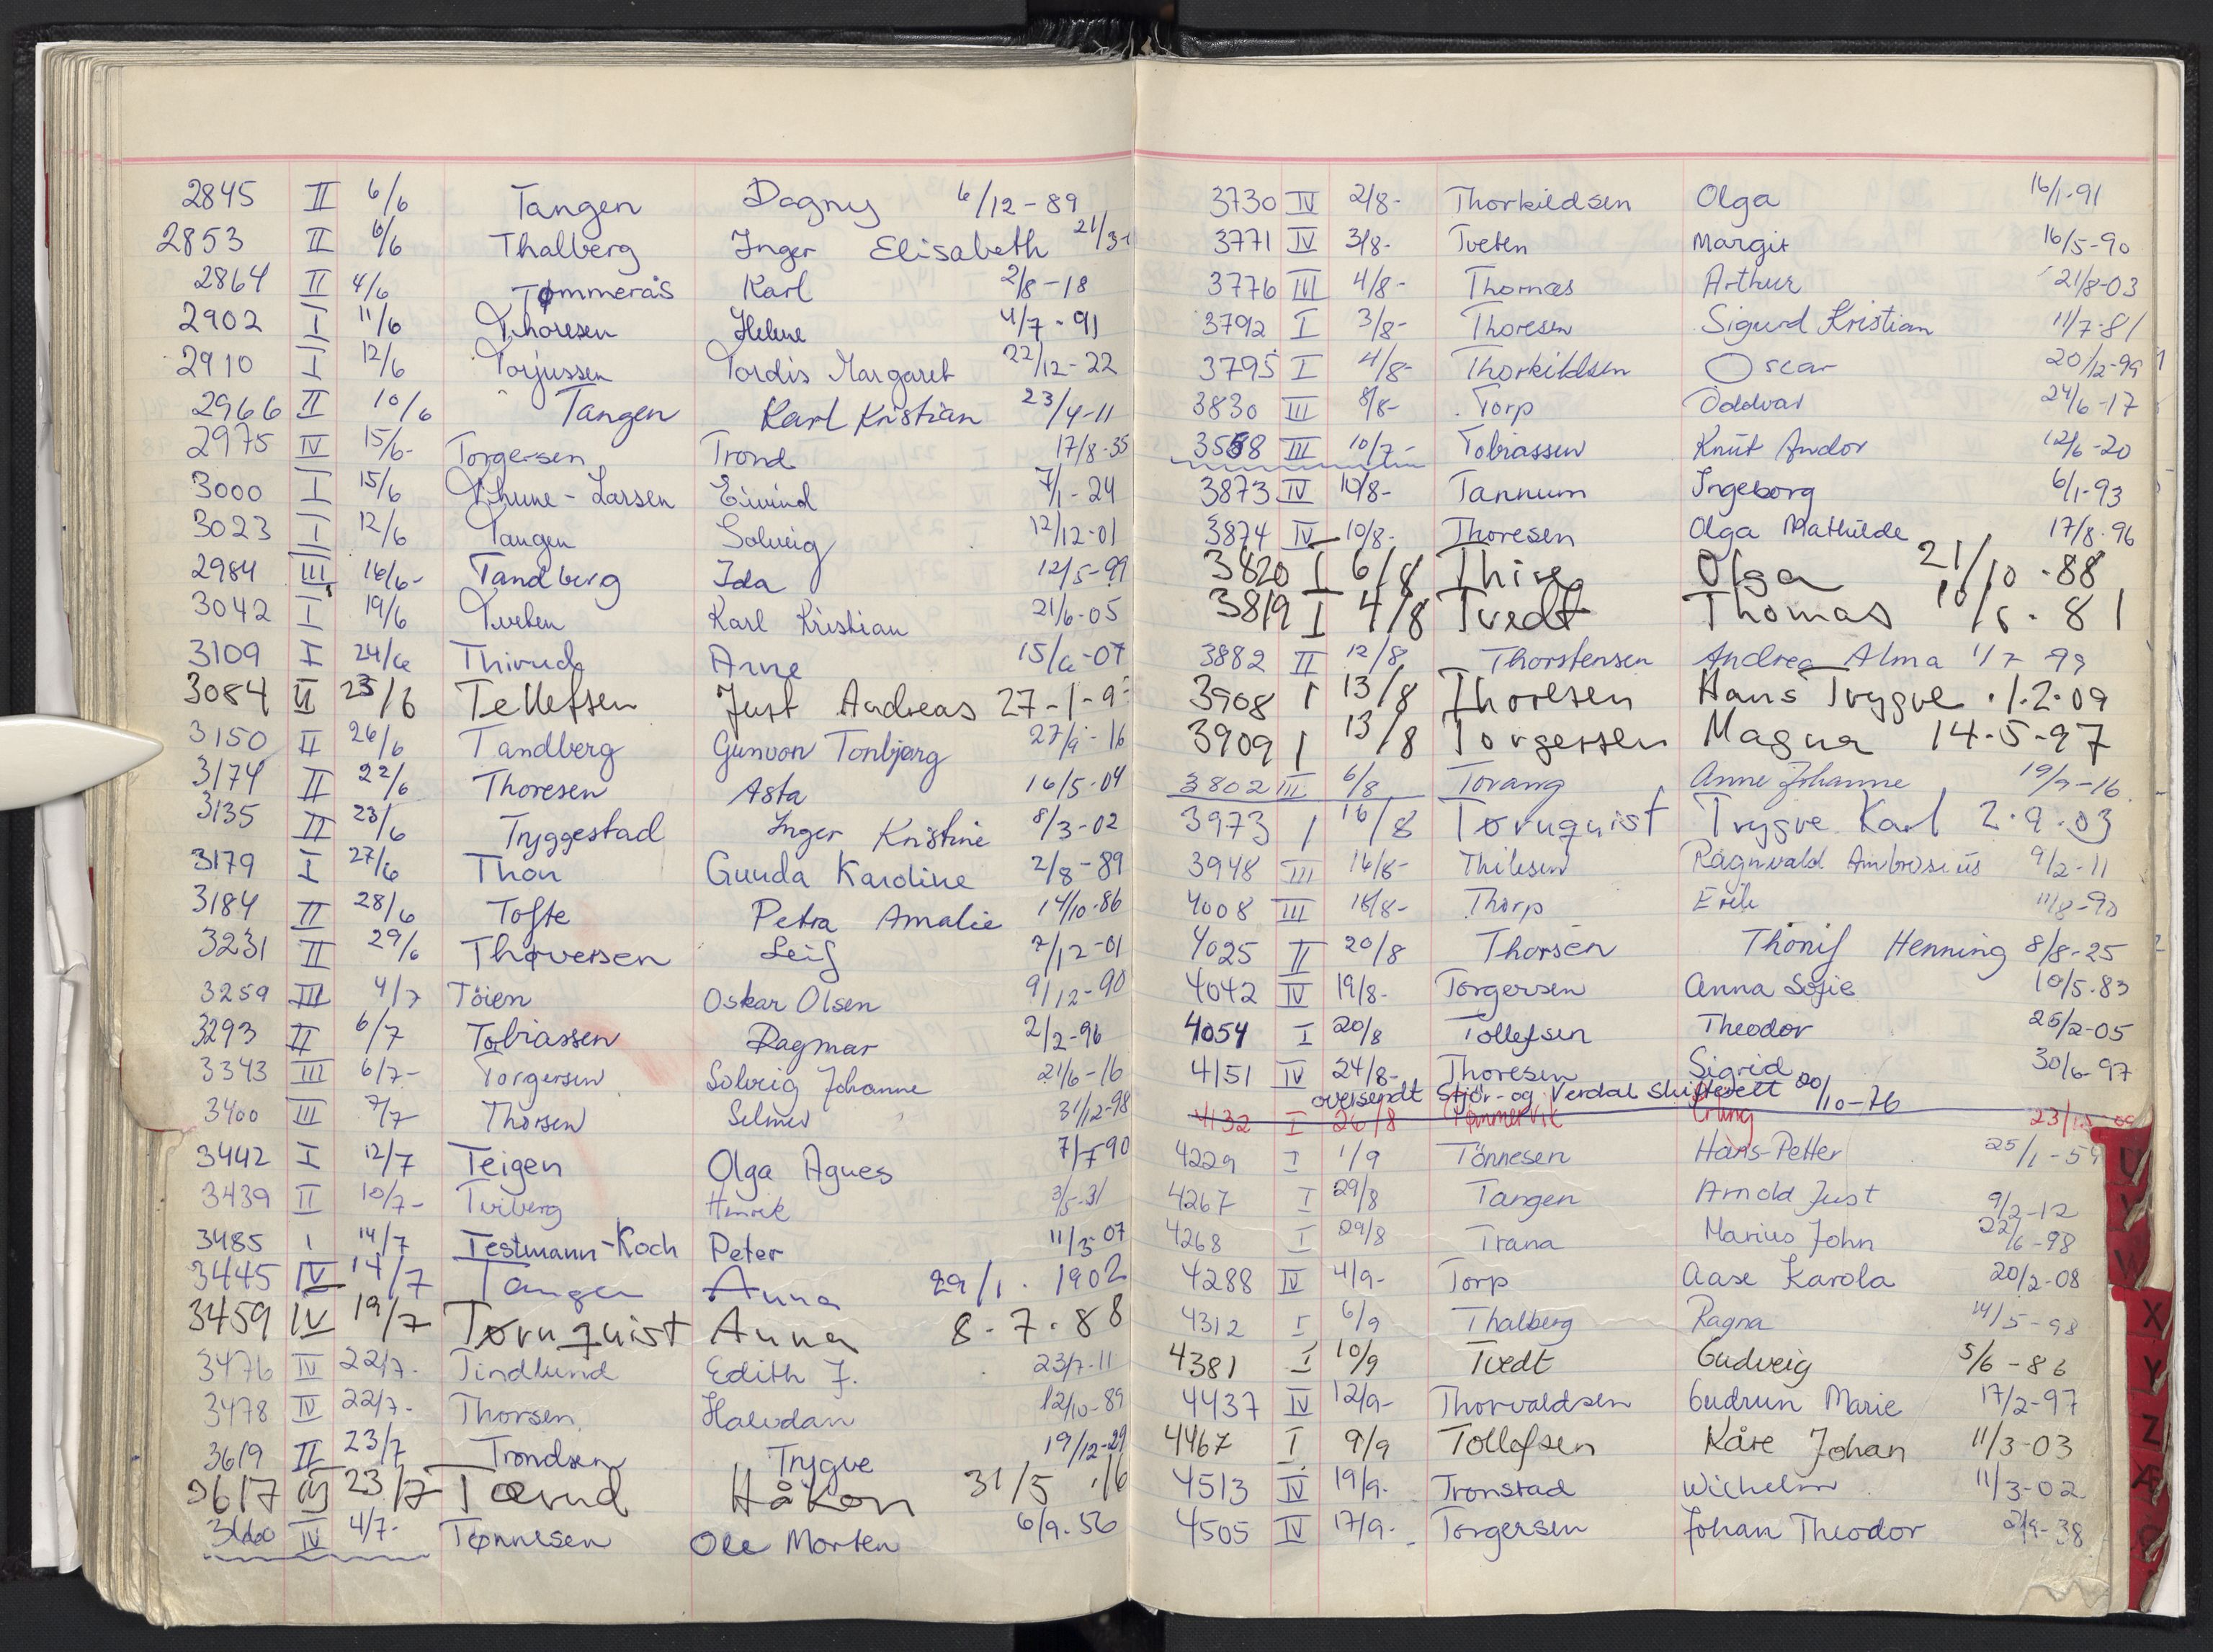 2845 II 6/6 Tangen Dagny 6/12-89
2853 II 6/6 Thalberg Inger Elisabeth 21/3-
2864 II 4/6 Tømmerås Karl 2/8-18
2902 I 11/6 Thoresen Helene 4/7-91
2910 I 12/6 Torjussen Tordis Margaret 22/12-22
2966 II 10/6 Tangen Karl Kristian 23/4-11
2975 IV 15/6- Torgersen Trond 17/8-35
3000 I 15/6 Thune-Larsen Eivind 7/1-24
3023 I 12/6 Tangen Solveig 12/12-01
2984 III 16/6- Tandberg Ida 12/5-99
3042 I 19/6 Tveten Karl Kristian 21/6-05
3109 I 24/6 Thirud Arne 15/6-07
3084 II 25/6 Tellefsen Just Andreas 27-1-9
3150 II 26/6 Tandberg Gunvor Tonbjørg 27/9-16
3174 II 22/6 Thoresen Asta 16/5-04
3135 II 23/6 Tryggestad Inger Kristine 8/3-02
3179 I 27/6 Thon Gunda Karoline 2/8-89
3184 II 28/6 Tofte Petra Amalie 14/10-86
3231 II 29/6 Thøversen Leif 7/12-01
3259 III 4/7 Töien Oskar Olsen 9/12-90
3293 II 6/7 Tobiassen Dagmar 2/2-96
3343 III 6/7- Torgersen Solveig Johanne 21/6-16
3400 III 7/7 Thorsen Selmer 31/12-98
3442 I 12/7 Teigen Olga Agnes 7/5 90
3439 II 10/7- Tviberg Henrik 3/5-31
3485 I 14/7 Testmann-Koch Peter 11/5 07
3445 IV 14/7 Tangen Anna 29/1. 1902
3459 IV 19/7 Tørnquist Anna 8-7-88
3476 IV 22/7- Tindlund Edith J. 23/7-11
3478 IV 22/7- Thorsen Halvdan 12/10-89
3619 II 23/7 Trondsen Trygve 19/12-29
3617 III 23/7 Tærud Håkon 31/5 16
3660 IV 4/7- Tønnesen Ole Morten 6/9-56
3730 IV 2/8- Thorkildsen Olga 16/1-91
3771 IV 3/8- Tveten Margit 16/5-90
3776 III 4/8- Thomas Arthur 21/8-03
3792 I 3/8- Thoresen Sigurd Kristian 11/7-81
3795 I 4/8- Thorkildsen Oscar 20/12-99
3830 III 8/8- Torp Oddvar 24/6-17
3558 III 10/7- Tobiassen Knut Andor 12/6-20
3873 IV 10/8- Tannum Ingeborg 6/1-93
3874 IV 10/8- Thoresen Olga Mathilde 17/8-96
3820 I 6/8 Olga 21/10-88
3819 I 4/8 Tvedt Thomas 10/5-81
3882 II 12/8 Thorstensen Andrea Alma 1/7 99
3908 I 13/8 Thoresen Hans Trygve 1.2.09
3909 I 13/8 Torgersen Magna 14-5-97
3802 III 6/8 Torvang Anne Johanne 19/9-16
3973 I 16/8 Tørnquist Trygve Karl 2.9.03
3948 III 16/8- Thilesen Ragnvald Ambrosius 9/2-11
4008 III 18/8- Thorp Erik 11/8-90
4025 II 20/8 Thorsen Thonif Henning 8/8-25
4042 IV 19/8- Torgersen Anna Sofie 10/5-83
4054 I 20/8 Tollefsen Theodor 26/2-05
4151 IV 24/8- Thoresen Sigrid 30/6-97
oversendt Stjør- og Verdal Skifterett 20/10-76
4132 I 26/8 Tømmervik Erling
4229 I 1/9 Tönnesen Hans-Petter 25/1-59
4267 I 29/8 Tangen Arnold Just 9/2-12
4268 I 29/8 Trana Marius John 22/6-98
4288 IV 4/9- Torp Aase Karola 20/2-08
4312 I 6/9 Thalberg Ragna 14/5-98
4381 I 10/9 Tvedt Gudveig 5/6-86
4437 IV 12/9- Thorvaldsen Gudrun Marie 17/2-97
4467 I 9/9 Tollefsen Kåre Johan 11/3-03
4513 IV 19/9- Tronstad Wilhelm 11/3-02
4505 IV 17/9- Torgersen Johan Theodor 2/9-38
U
V
W
X
Y
Z
Æ